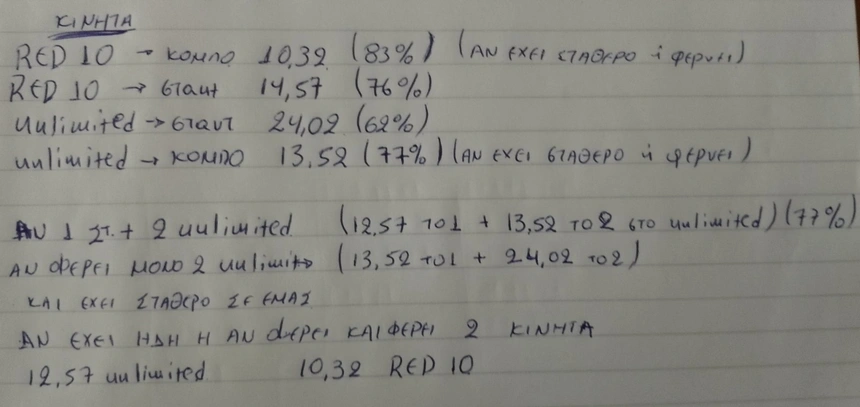 ΚΙΝΗΤΑ
RED 10 → κομπο 10,32 (83%) (ΑΝ ΕΧΕΙ ΣΤΑΘΕΡΟ ή φερνει)
RED 10 → σταντ 14,57 (76%)
unlimited → σταντ 24,02 (62%)
unlimited → ΚΟΜΠΟ 13,52 (77%) (ΑΝ ΕΧΕΙ ΣΤΑΘΕΡΟ ή φερνει)
ΑΝ 1 ΣΤ. + 2 unlimited (12,57 το1 + 13,52 το2 στο unlimited) (77%)
ΑΝ ΦΕΡΕΙ μονο 2 (13,52 το1 + 24,02 το2)
ΚΑΙ ΕΧΕΙ ΣΤΑΘΕΡΟ ΣΕ ΕΜΑΣ
ΑΝ ΕΧΕΙ ΗΔΗ Η ΑΝ ΦΕΡΕΙ ΚΑΙ ΦΕΡΕΙ 2 ΚΙΝΗΤΑ
12,57 unlimited 10,32 RED 10